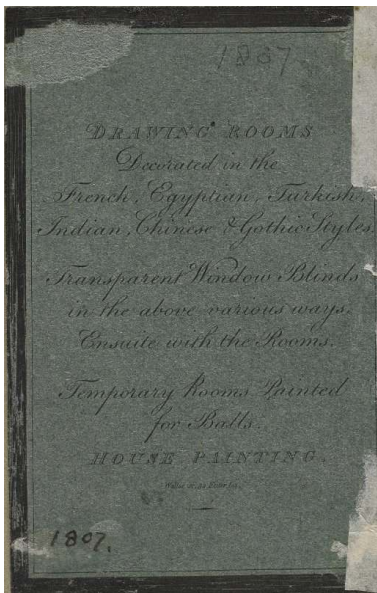 1807
DRAWING ROOMS
Decorated in the
French, Egyptian, Turkish,
Indian, Chinese & Gothic Styles.
Transparent Window Blinds
in the above various ways,
Ensuite with the Rooms.
Temporary Rooms Painted
for Balls.
HOUSE PAINTING.
1807.